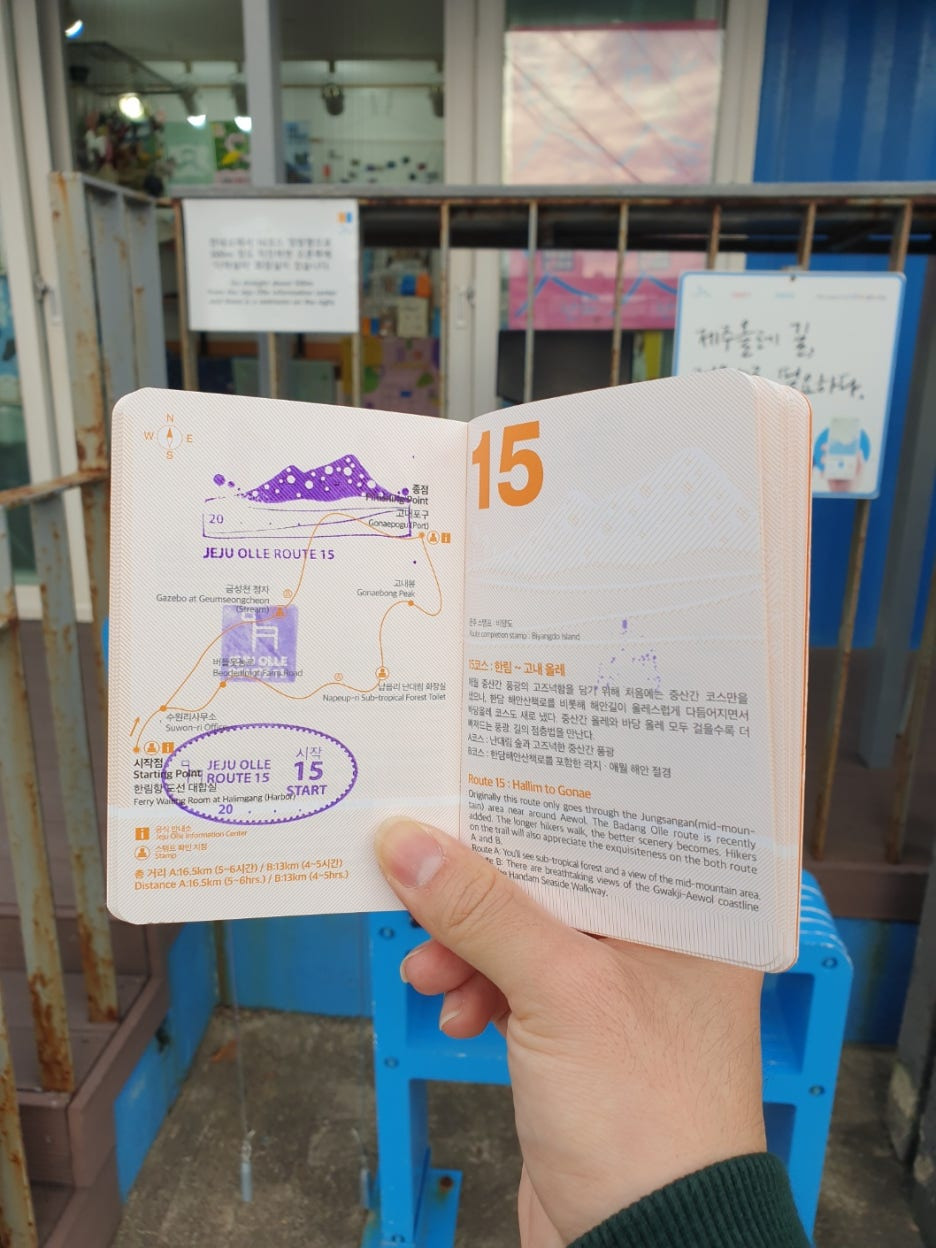 Go straight about 500m
from the Jeju Olle information center
and there is a restroom on the right
제주올레 길,
필요하다.
N
W E
S
20
JEJU OLLE ROUTE 15
종점
Finishing Point
고내포구
Gonaepogu (Port)
금성천 정자
Gazebo at Geumseongcheon
(Stream)
고내봉
Gonaebong Peak
JEJU OLLE
Road
납읍리 난대림 화장실
Napeup-ri Sub-tropical Forest Toilet
수원리사무소
Suwon-ri Office
시작점
Starting Point
한림항 도선 대합실
Ferry Waiting Room at Halimgang (Harbor)
JEJU OLLE
ROUTE 15
20 . .
시작
15
START
i 공식 안내소
Jeju Olle Information Center
스탬프 확인 지점
Stamp
총 거리 A:16.5km (5~6시간) / B:13km (4~5시간)
Distance A:16.5km (5~6hrs.) / B:13km (4~5hrs.)
15
완주 스탬프 : 비양도
Route completion stamp : Biyangdo Island
15코스 : 한림 ~ 고내 올레
중산간 풍광의 고즈넉함을 담기 위해 처음에는 중산간 코스만을
한담 해안산책로를 비롯해 해안길이 올레스럽게 다듬어지면서
바당올레 코스도 새로 냈다. 중산간 올레와 바당 올레 모두 걸을수록 더
빠져드는 풍광, 길의 점층법을 만난다.
A코스 : 난대림 숲과 고즈넉한 중산간 풍광
B코스 : 한담해안산책로를 포함한 곽지 · 애월 해안 절경
Route 15 : Hallim to Gonae
Originally this route only goes through the Jungsangan(mid-moun-
tain) area near around Aewol. The Badang Olle route is recently
added. The longer hikers walk, the better scenery becomes. Hikers
on the trail will also appreciate the exquisiteness on the both route
A and B.
Route A: You'll see sub-tropical forest and a view of the mid-mountain area.
B: There are breathtaking views of the Gwakji-Aewol coastline
Handam Seaside Walkway.